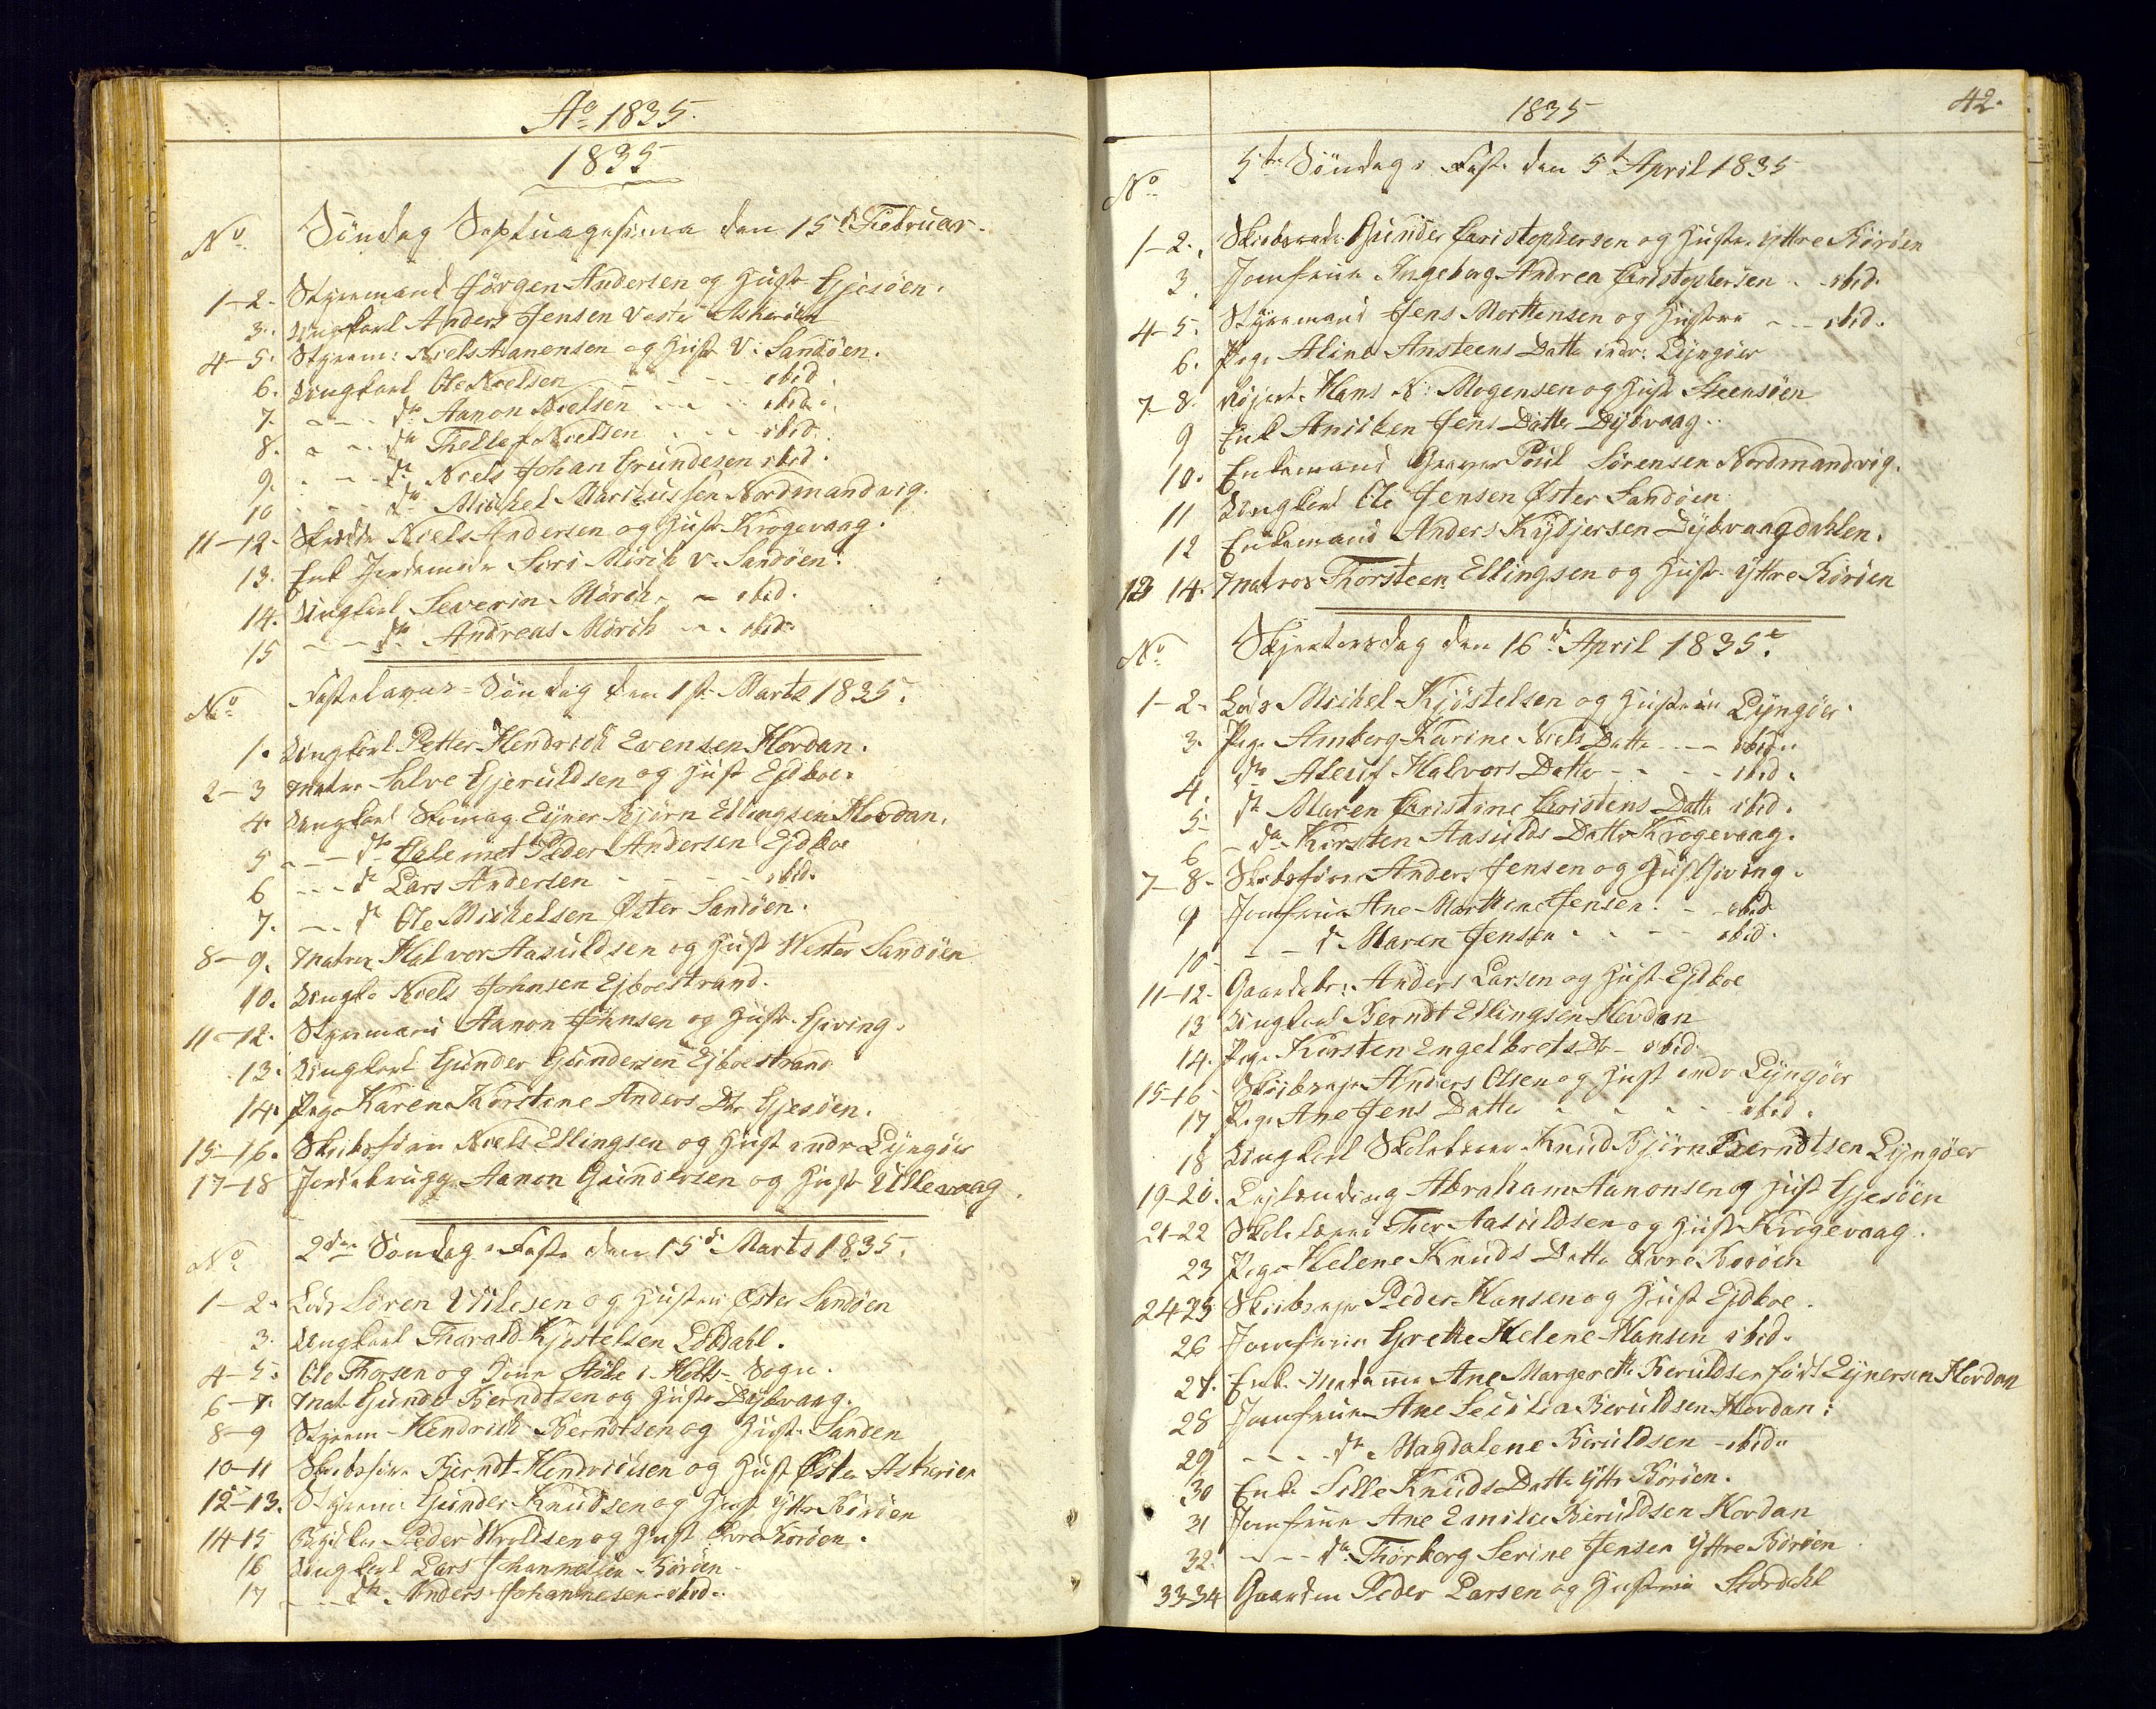 Ao 1835.
1835
No Søndag Septuagesima den 15d Februar.
1-2. Styrmand Jörgen Andersen og Hustr Gjesöen.
3. Ungkarl Anders Jensen Vestr Askeröen
4-5. Styrm: Niels Aanensen og Hustr V: Sandöen.
6. Ungkarl Ole Nielsen - - - ibid.
7. - - do Aanon Nielsen - - - ibid.
8. - - do Thellef Nielsen - - - ibid.
9. - - do Niels Johan Grundesen ibid.
10 - - do Michel Marikussen Nordmandvig.
11-12. Niels Andersen og Hustr Krogevaag.
13. Enk Jordemoder Siri Mörch V. Sandöen.
14. Ungkarl Severin Mörch - - ibid.
15 - - do Andreas Mörch - - ibid.
No Fastelavns-Söndag den 1ste Marts 1835.
1. Ungkarl Petter Hendrich Evensen Hovdan.
2-3 Matro Salve Gjeruldsen og Hust Ejdboe.
4. Ungkarl Skomag Eyner Björn Ellingsen Hovdan.
5 - - do Peder Andersen Ejdboe
6 - - do Lars Andersen - - - ibid.
7. - - do Ole Michelsen Öster Sandöen.
8-9. Matros Halvor Aasuldsen og Hust Wester Sandöen
10. Ungk. Niels Johnsen Ejboestrand.
11-12. Styrmand Aanon Johnsen og Hustr. Giving.
13. Ungkarl Gunder Gundersen Ejboestrand
14. Pige Karen Kirstine Anders Dtr Gjesöen.
15-16. Skibsförer Niels Ellingsen og Hust indr Lyngöer
17-18 Jordebrugr Aanon Gundersen og Hust Ullevaag
No 2den Søndag i Faste den 15d Marts 1835.
1-2. Lods Sören Villesen og Hustru Öster Sandöen
3. Ungkarl Tharald Kjöstelsen Lövdahl.
4-5. Ole Thorsen og Kone i Holts-Sogn.
6-7. Mat Gunder Berndtsen og Hustr Dybvaag.
8-9 Styrm Hendrich Berndtsen og Hust. Sanden
10-11 Skibsförer Berndt Hendrichsen og Hust Öster Askeröen
12-13. Styrm Gunder Knudsen og Hust Yttr Böröen
14-15 Peder Wroldsen og Hust Övre Böröen.
16 Ungkarl Lars Johannesen Böröen
17 - - do Anders Johannesen ibid.
1835 42.
No 5te Søndag i Faste den 5te April 1835
1-2. Gunder Christophersen og Hustr. Yttre Böröen
3. Jomfrue Ingeborg Andrea Christophersen - ibid.
4-5. Styrmand Jens Mortensen og Hustrue - - ibid.
6. Pige Aline Ansteens Dattr indr: Lyngöer
7-8. Hans N: Mogensen og Hust Steensöen
9 Enk Anichen Jens Dattr Dybvaag.
10. Enkemand Graver Poul Sörensen Nordmandvig.
11 Ungkarl Ole Jensen Öster Sandöen
12 Enkemand Anders Dybvaagdahlen.
13 14. Matros Thorsteen Ellingsen og Hustr. Yttre Böröen
No Skjertorsdag den 16d April 1835.
1-2. Lods Michel Kjöstelsen og Hustrue Lyngöer.
3. Pige Amborg Karine Niels Dattr - - ibid.
4. do Aleuf Halvors Dattr - - - ibid.
5. do Maren Christine Christens Dattr ibid.
6 - do Kirsten Aasulds Dattr Krogevaag.
7-8. Skibsförer Anders Jensen og Hust Giving.
9 Jomfrue Ane Marthine Jensen - - ibid.
10 - - do Maren Jensen - - - ibid.
11-12. Gaardbr: Anders Larsen og Hust Ejdboe
13 Ungkarl Berndt Ellingsen Hovdan
14. Pige Kirsten Engelbrets Dtr - ibid.
15-16 Anders Olsen og Hust indr Lyngöer
17 Pige Ane Jens Dattr - - - ibid.
18 Ungkarl Skolelærer Knud Björn Berndtsen Lyngöer
19-20. Abraham Aanonsen og Hust Gjesöen
21-22 Skolelærer Thor Aasuldsen og Hust Krogevaag.
23 Pige Helene Knuds Dattr Övre Böröen
24-25 Peder Hansen og Hust Ejdboe.
26 Jomfrue Grethe Helene Hansen ibid.
27. Enk. Madamme Ane Margerethe Beruldsen født Eynersen Hovdan
28 Jomfrue Ane Secilia Beruldsen Hovdan:
29 - - - do Magdalene Beruldsen - ibid.
30 Enk. Sille Knuds Dattr Yttr Böröen.
31 Jomfrue Ane Emilie Beruldsen Hovdan
32. - - - do Thorborg Serine Jensen Yttre Böröen
33-34 Gaardm Peder Larsen og Hustrue Stordahl